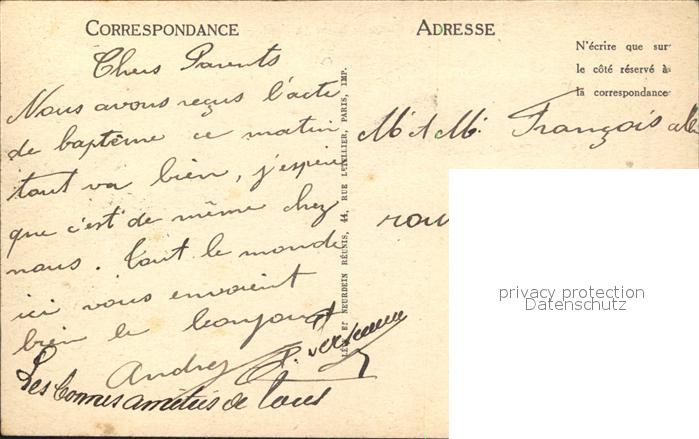 CORRESPONDANCE
ADRESSE
N'écrire que sur
le côté réservé à
la correspondance
Chers Parents
Nous avons reçus l'acte
de baptême ce matin
tout va bien, j'espère
que c'est de même chez
nous. Tout le monde
ici vous envoient
bien le bonjour
Andrey
Les bonnes amitiés de tous
LÉVY ET NEURDEIN RÉUNIS, 44, RUE LETELLIER, PARIS, IMP.
Mr & Mr. François
rou
privacy protection
Datenschutz